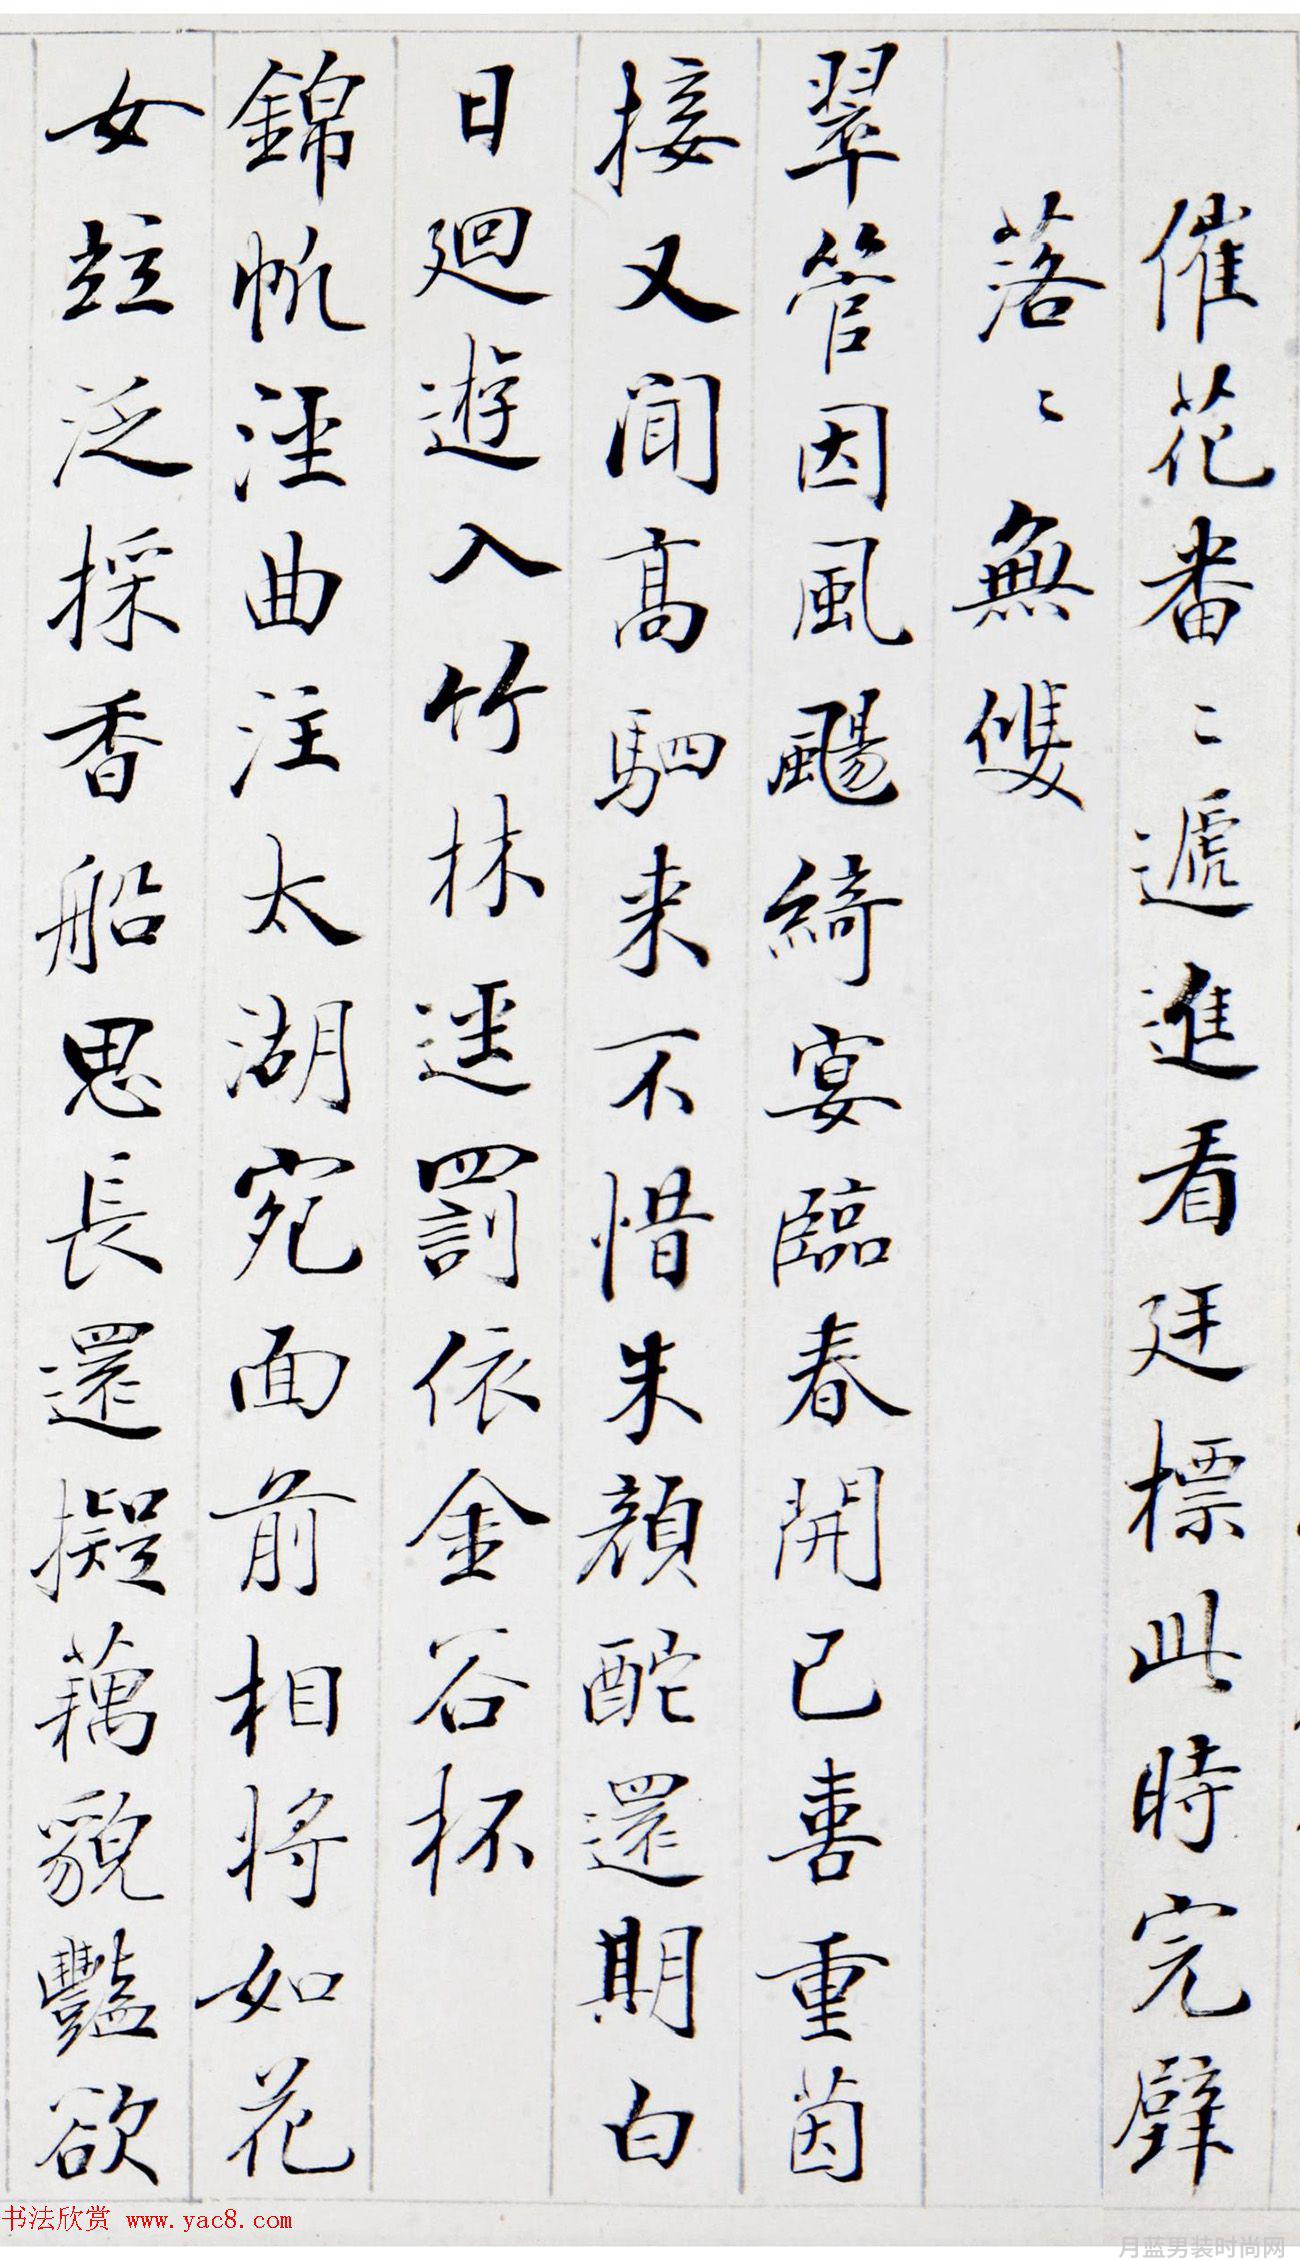 催花番〻遞進看廷標此時完璧
落〻無雙
翠管因風颺綺宴臨春開已喜重茵
接又聞高駟来不惜朱顔酡還期白
日廻遊入竹林逕罰依金谷杯
錦帆涇曲注太湖宛面前相將如花
女竝泛採香船思長還擬藕貌豔欲
书法欣赏 www.yac8.com
月蓝男装时尚网